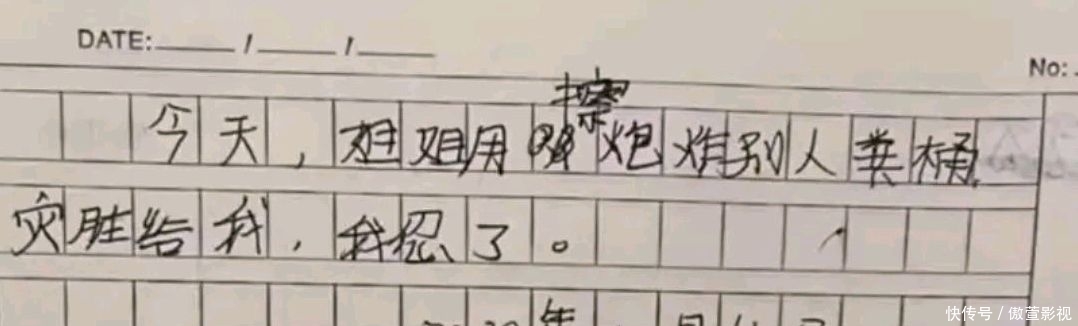 DATE: / /
No:
今天,姐姐用擦炮炸别人粪桶,
灾脏给我,我忍了。
年
快传号/傲萱影视